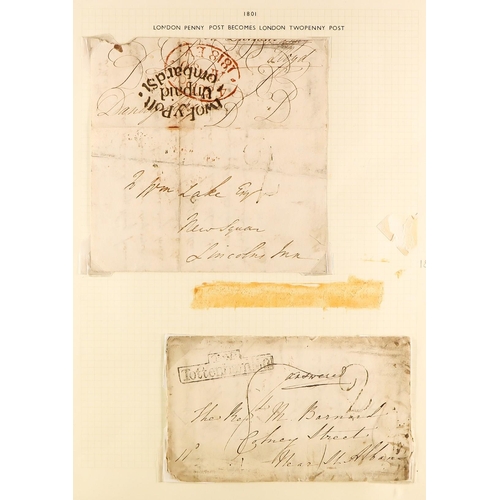 1801
LONDON PENNY POST BECOMES LONDON TWOPENNY POST
1818
TwoPyPost
Unpaid
LombardSt
To Wm Lake Esqr
New Square
Lincolns Inn
Tottenham
answered
The Revd M Barnard
Colney Street
Near St Albans